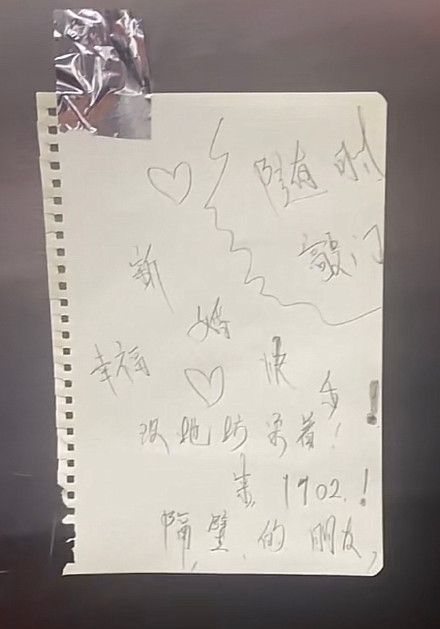 随时
敲门
新
婚
幸福
快
乐!
没地方呆着!
来 1702!
隔壁的朋友